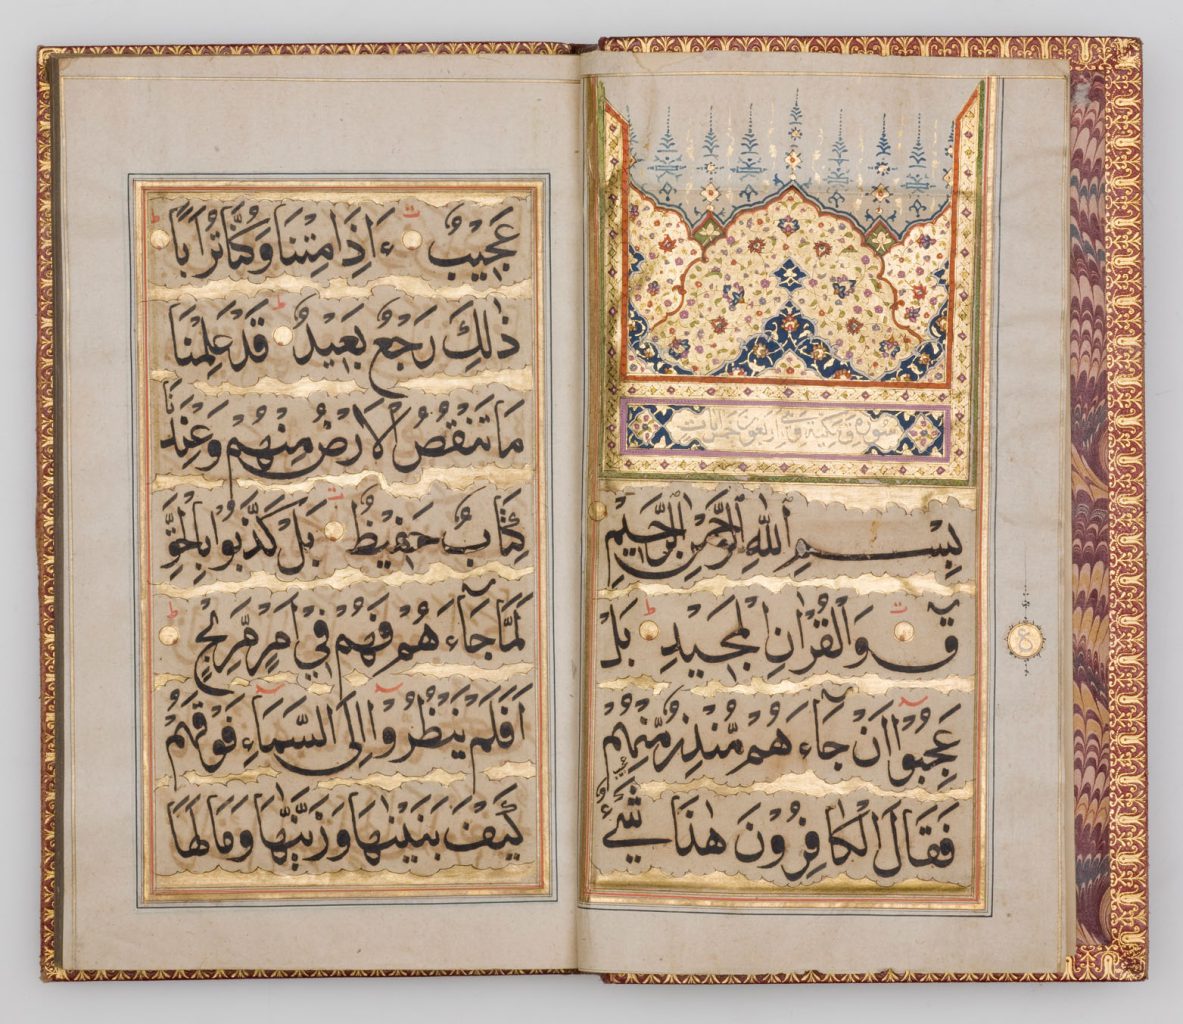 سورة ق مكية وهي اربعون خمس ايات
بِسْمِ اللهِ الرَّحْمٰنِ الرَّحِيمِ
قٓ وَالْقُرْاٰنِ الْمَجِيدِ بَلْ
عَجِبُوٓا اَنْ جَآءَهُمْ مُّنْذِرٌ مِّنْهُمْ
فَقَالَ الْكَافِرُونَ هٰذَا شَيْءٌ
عَجِيبٌ ءَاِذَا مِتْنَا وَكُنَّا تُرَابًا
ذٰلِكَ رَجْعٌ بَعِيدٌ قَدْ عَلِمْنَا
مَا تَنْقُصُ الْاَرْضُ مِنْهُمْ وَعِنْدَنَا
كِتَابٌ حَفِيظٌ بَلْ كَذَّبُوا بِالْحَقِّ
لَمَّا جَآءَهُمْ فَهُمْ فِيٓ اَمْرٍ مَّرِيجٍ
اَفَلَمْ يَنْظُرُوٓا اِلَى السَّمَآءِ فَوْقَهُمْ
كَيْفَ بَنَيْنٰهَا وَزَيَّنّٰهَا وَمَا لَهَا